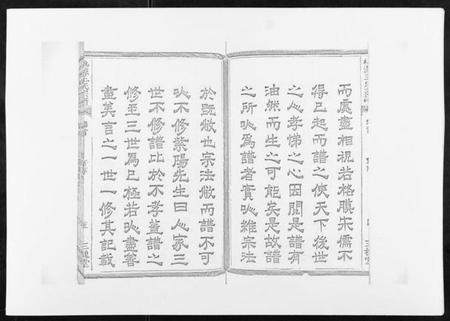 而處盡相視若格膜宋儒不
得已起而譜之使天下後世
之人孝悌之心因閱是譜有
油然而生之可能矣是故譜
之所以為譜者實以維宗法
於既敝也宗法敝而譜不可
以不修紫陽先生曰人家三
世不修譜比於不孝蓋譜之
修至三世為已極若以盡善
盡美言之一世一修其記載